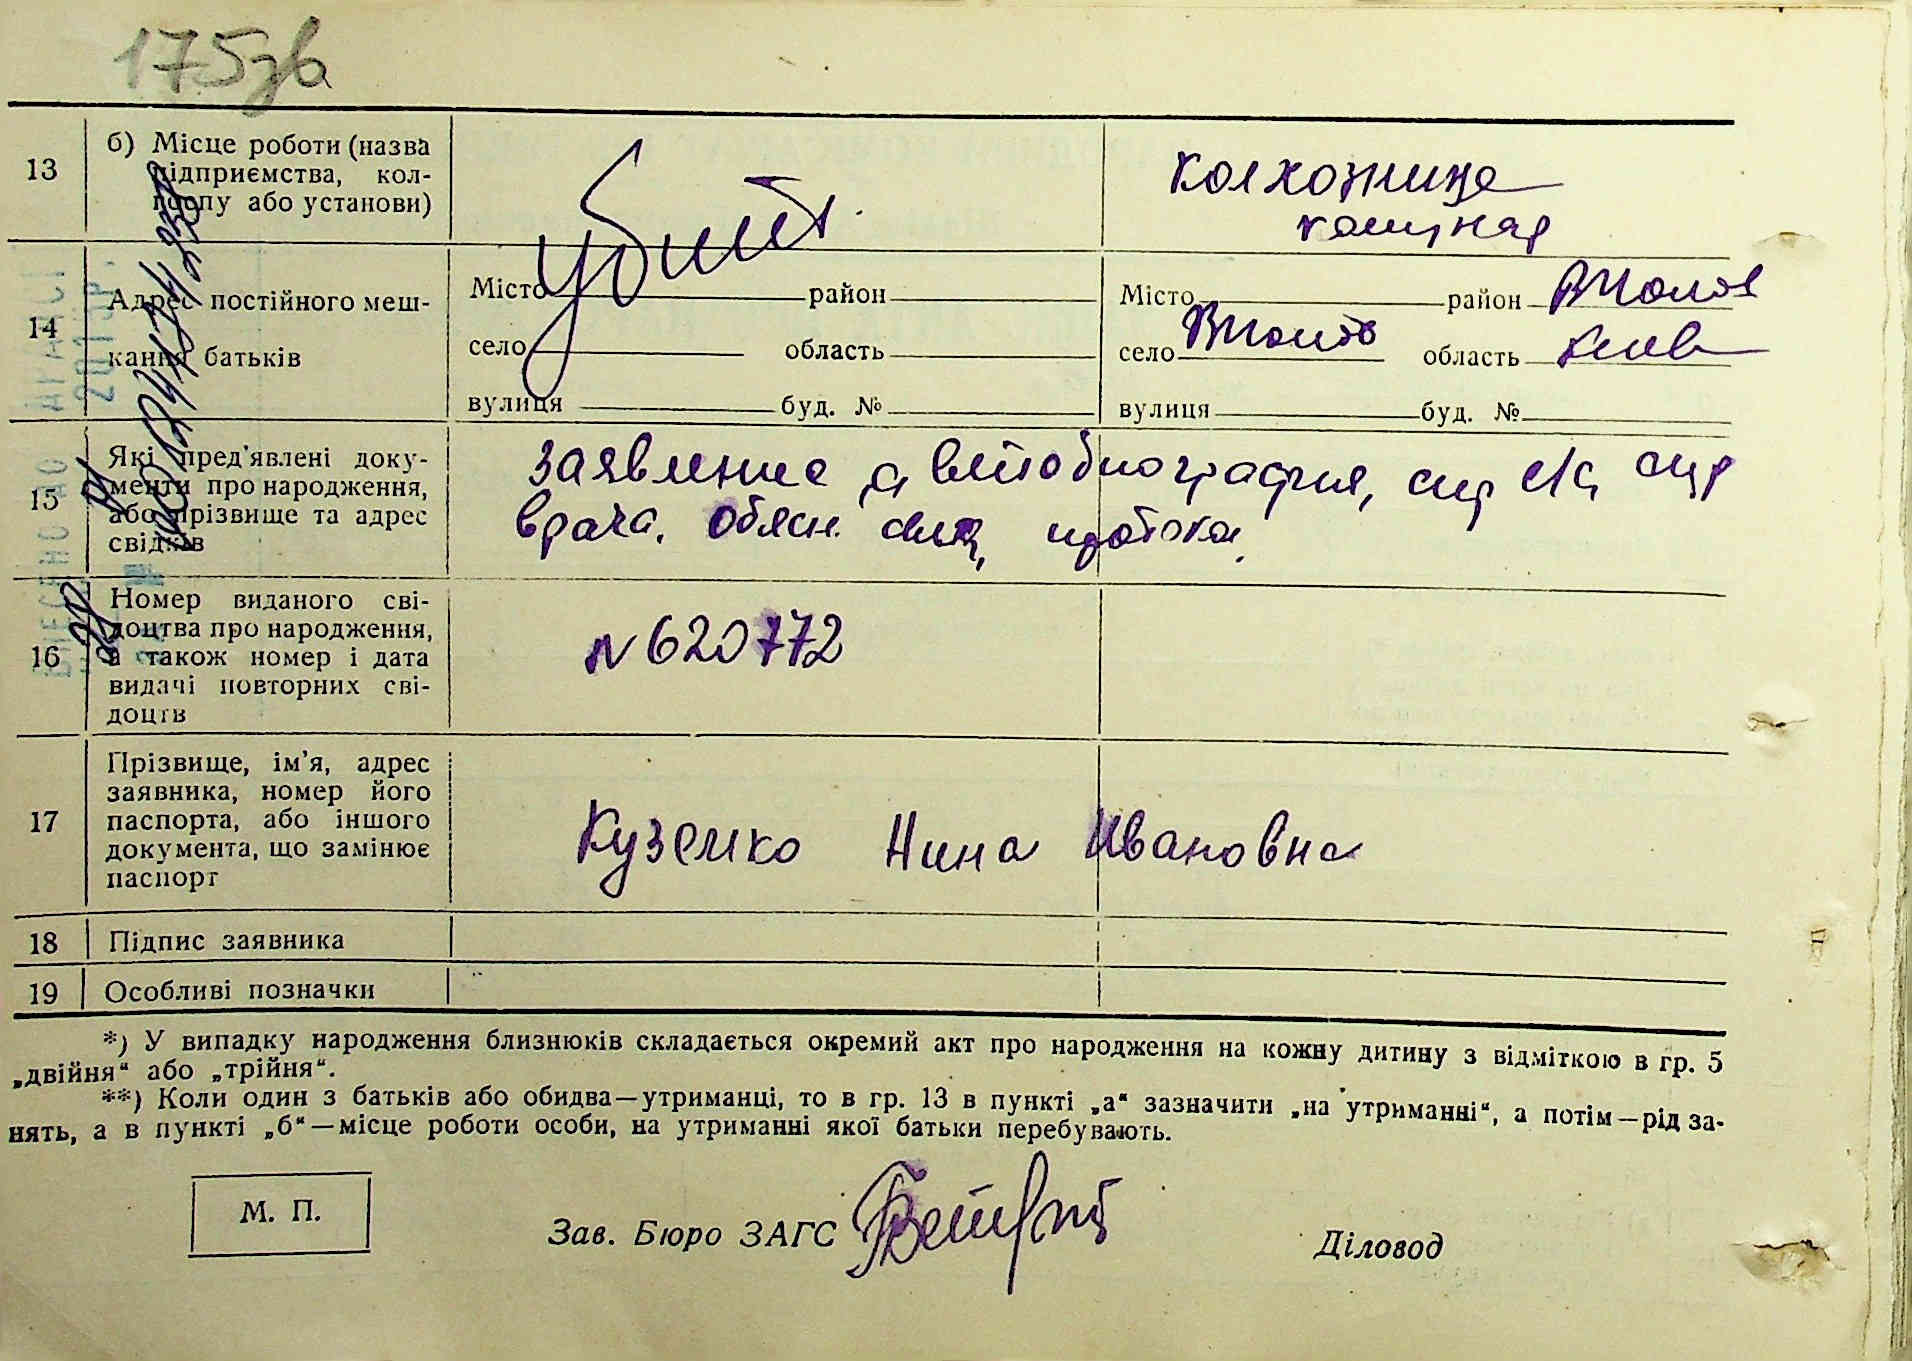 175зв
13
б) Місце роботи (назва
підприємства, кол-
госпу або установи)
убит
колхозница
14
Адрес постійного меш-
кання батьків
Місто район
село область
вулиця буд. №
Місто район
село область Киев
вулиця буд. №
15
Які пред'явлені доку-
менти про народження,
або прізвище та адрес
свідків
Заявление, автобиография, с/с
врача.
16
Номер виданого сві-
доцтва про народження,
а також номер і дата
видачі повторних сві-
доцтв
№ 620772
17
Прізвище, ім'я, адрес
заявника, номер його
паспорта, або іншого
документа, що замінює
паспорт
Куземко Нина Ивановна
18 Підпис заявника
19 Особливі позначки
*) У випадку народження близнюків складається окремий акт про народження на кожну дитину з відміткою в гр. 5
„двійня“ або „трійня“.
**) Коли один з батьків або обидва—утриманці, то в гр. 13 в пункті „а“ зазначити „на утриманні“, а потім—рід за-
нять, а в пункті „б“—місце роботи особи, на утриманні якої батьки перебувають.
М. П.
Зав. Бюро ЗАГС
Діловод